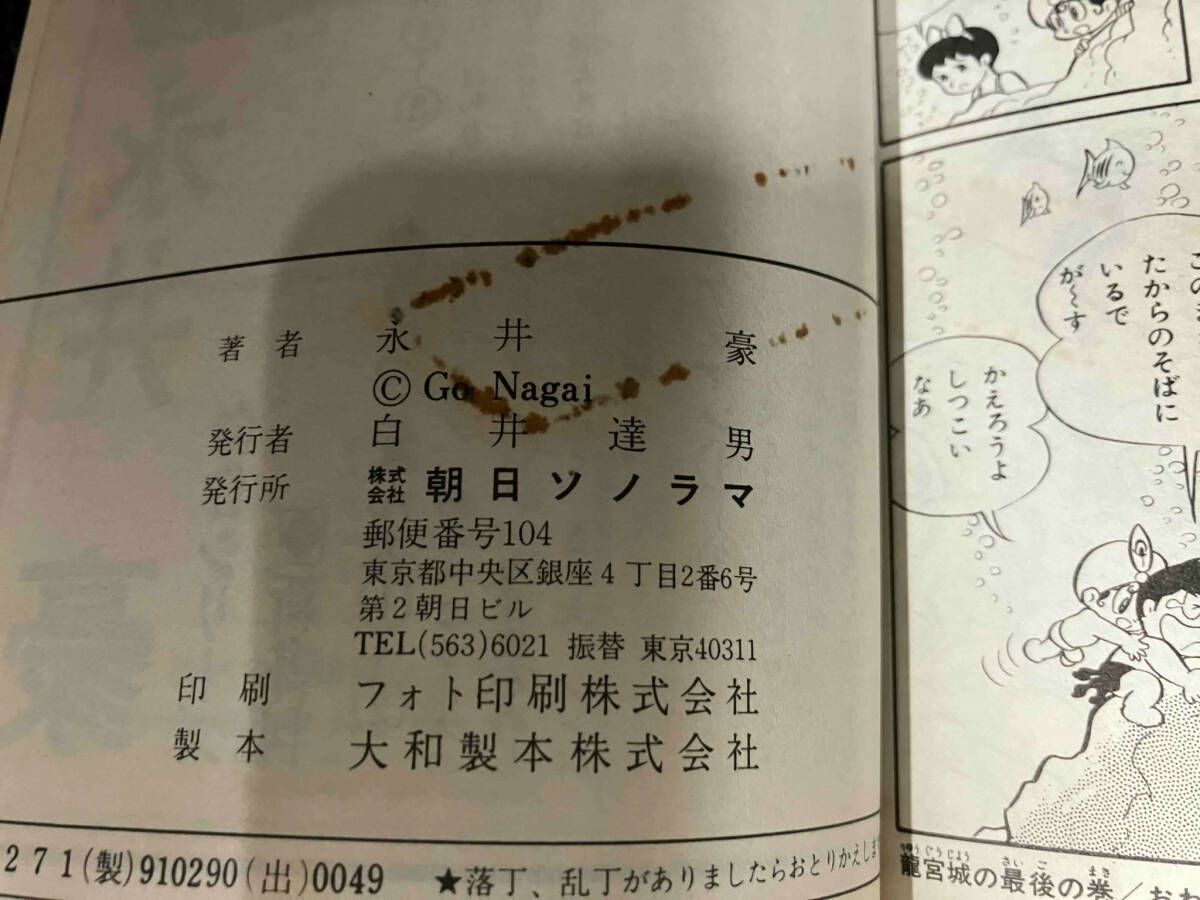 著者 永井 豪
© Go Nagai
発行者 白井達男
発行所 株式会社 朝日ソノラマ
郵便番号104
東京都中央区銀座4丁目2番6号
第2朝日ビル
TEL(563)6021 振替 東京40311
印刷 フォト印刷株式会社
製本 大和製本株式会社
271(製)910290(出)0049 ★落丁、乱丁がありましたらおとりかえしま
たからのそばに
いるで
が〜す
かえろうよ
しつこい
なあ
龍宮城の最後の巻/おわ